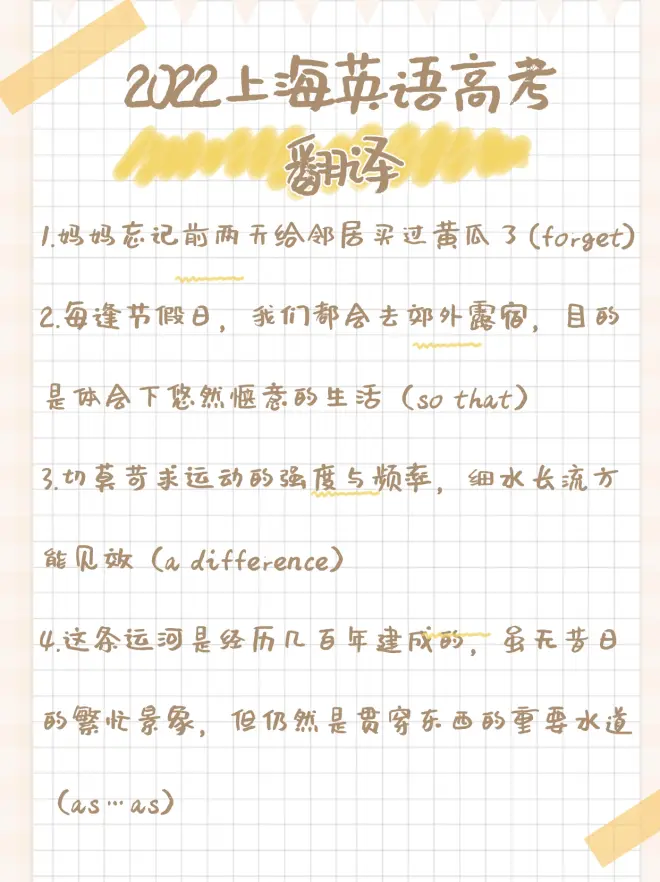 2022上海英语高考
翻译
1.妈妈忘记前两天给邻居买过黄瓜了(forget)
2.每逢节假日，我们都会去郊外露宿，目的
是体会下悠然惬意的生活（so that）
3.切莫苛求运动的强度与频率，细水长流方
能见效（a difference）
4.这条运河是经历几百年建成的，虽无昔日
的繁忙景象，但仍然是贯穿东西的重要水道
（as…as）